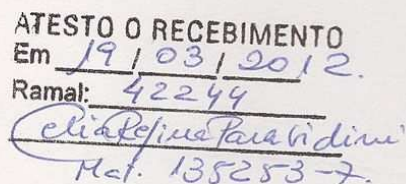 ATESTO O RECEBIMENTO
Em 19 / 03 / 2012.
Ramal: 42244
Celia Regina Paravidini
Mat. 135253-7.